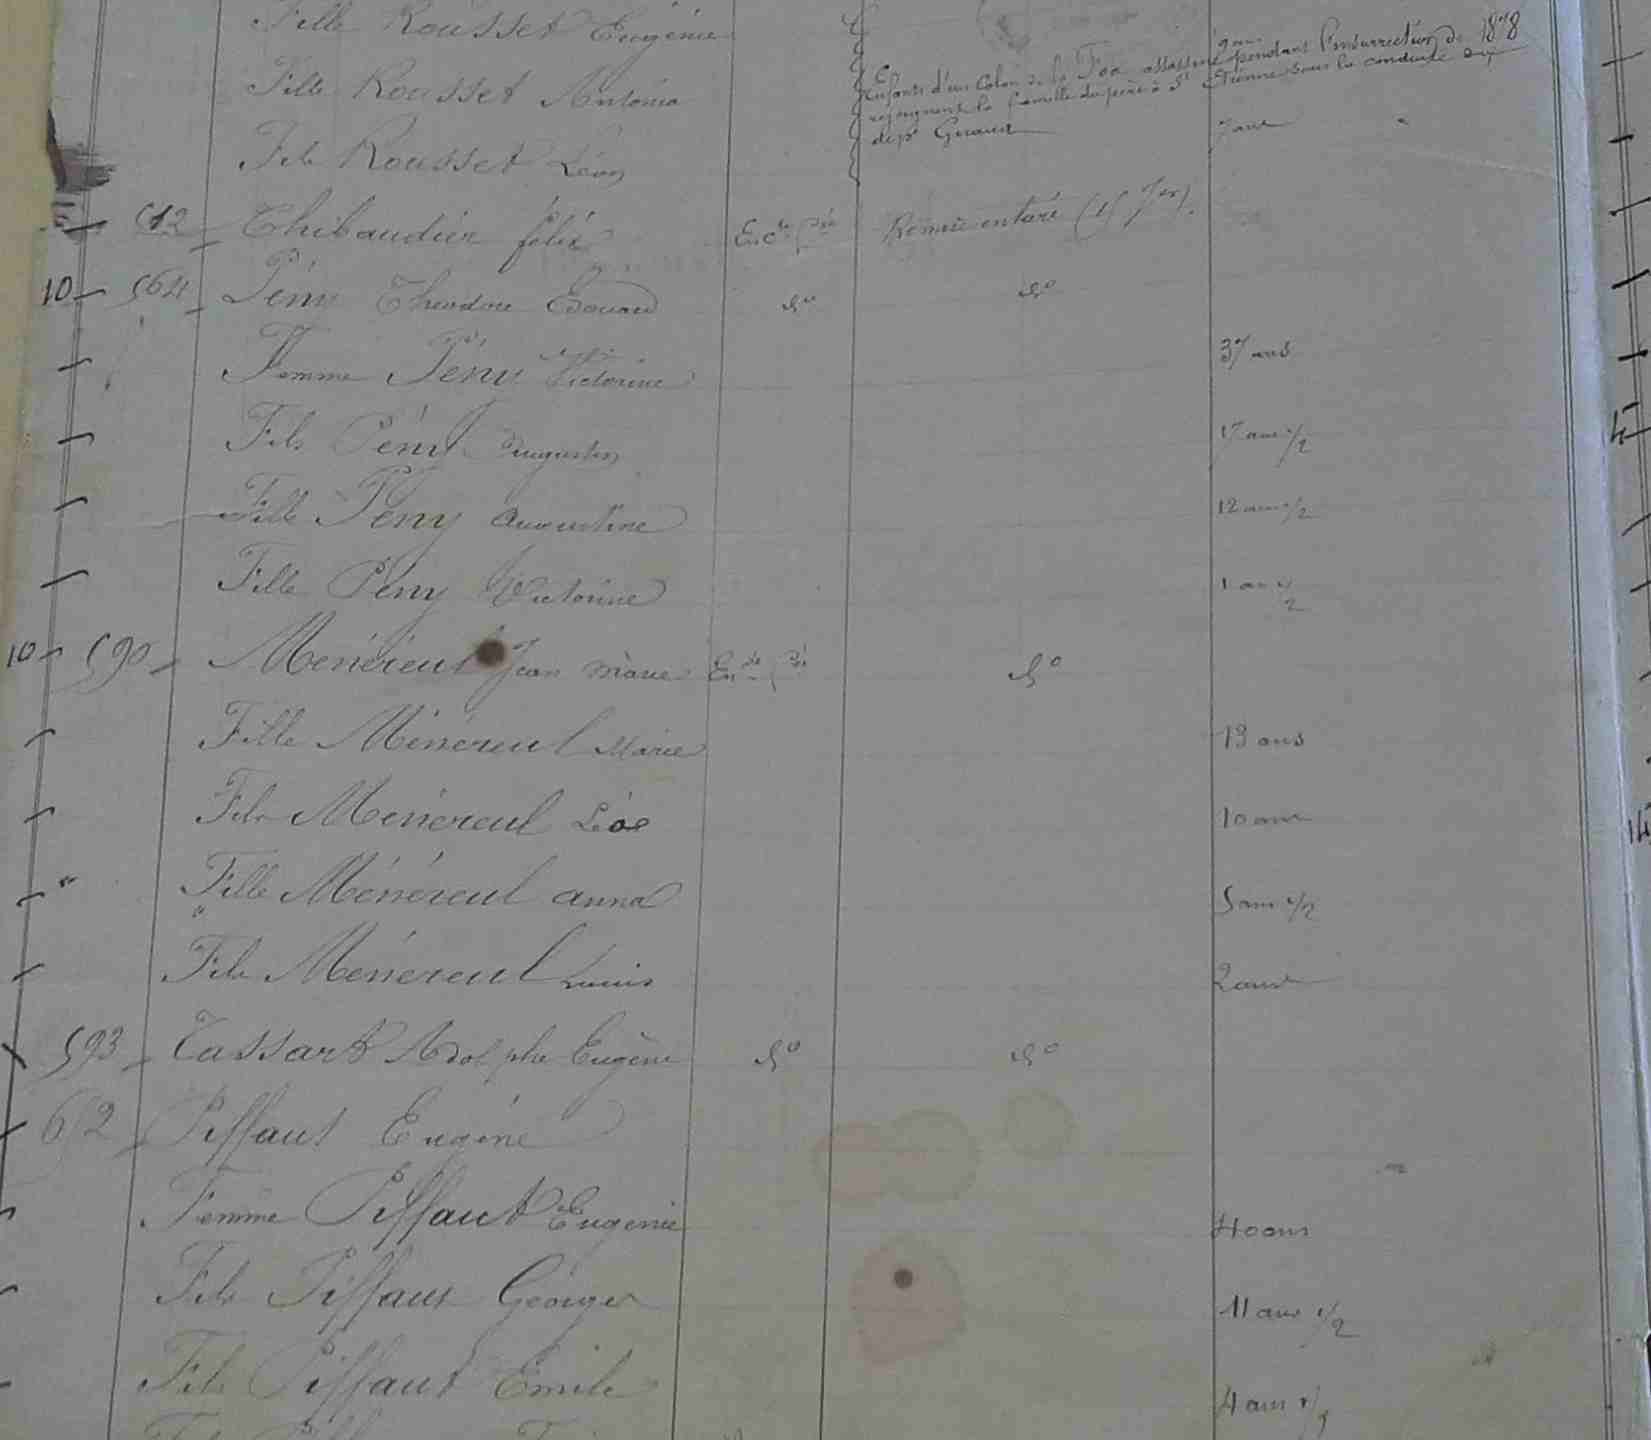 Fille Rousset Eugénie
9 ans
Fille Rousset Antonia
Enfants d'un Colon de la Foa assassiné pendant l'insurrection de 1878
rejoignent la famille du père à St Etienne sous la conduite du
dépé Giraud
Fils Rousset Léon 7 ans
512 Thibaudier félix
10 564 Pény Théodore Edouard do do
Femme Pény Victorine 37 ans
Fils Pény Augustin 17 ans 1/2
Fille Pény Augustine 12 ans 1/2
Fille Pény Victorine 1 an 1/2
10 590 Ménéreul Jean Marie do
Fille Ménéreul Marie 13 ans
Fils Ménéreul Léon 10 ans
Fille Ménéreul anna 5 ans 1/2
Fils Ménéreul Louis 2 ans
593 Tassart Adolphe Eugène do do
652 Piffaut Eugène
Femme Piffaut Eugénie 40 ans
Fils Piffaut Georges 11 ans 1/2
Fils Piffaut Emile 4 ans